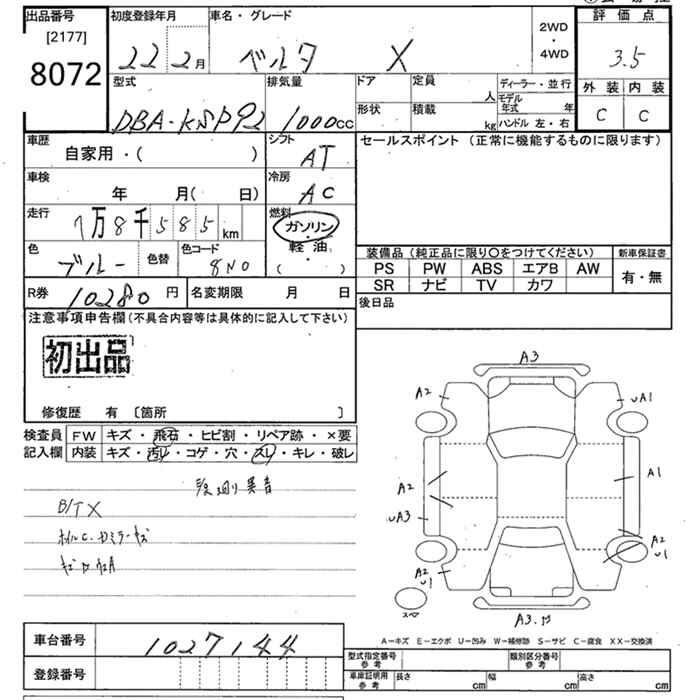 出品番号
[2177]
8072
初度登録年月
22 2月
車名・グレード
ベルタ X
2WD
・
4WD
評価点
3.5
外装 内装
C C
型式
DBA-KSP92
排気量
1000cc
ドア
形状
定員 人
積載 kg
ディーラー・並行
モデル年式 年
ハンドル 左・右
車歴
自家用・( )
シフト
AT
車検
年 月( 日)
冷房
AC
走行
7万8千585km
燃料
ガソリン
軽油
( ・ )
色
ブルー
色替
色コード
8N0
R券 10280円
名変期限 月 日
セールスポイント (正常に機能するものに限ります)
装備品(純正品に限り○をつけてください)
新車保証書
PS PW ABS エアB AW
SR ナビ TV カワ
有・無
後日品
注意事項申告欄(不具合内容等は具体的に記入して下さい)
初出品
修復歴 有 〔箇所 〕
検査員
記入欄
FW キズ・飛石・ヒビ割・リペア跡・×要
内装 キズ・汚レ・コゲ・穴・スレ・キレ・破レ
異音
B/TX
A3
A2
UA1
A2
A1
UA3
A2
U1
A2
U1
スペ
A3.
A−キズ E−エクボ U−凹み W−補修跡 S−サビ C−腐食 XX−交換済
車台番号
1027144
登録番号
型式指定番号
参考
類別区分番号
参考
車庫証明用
参考
長さ cm
幅 cm
高さ cm